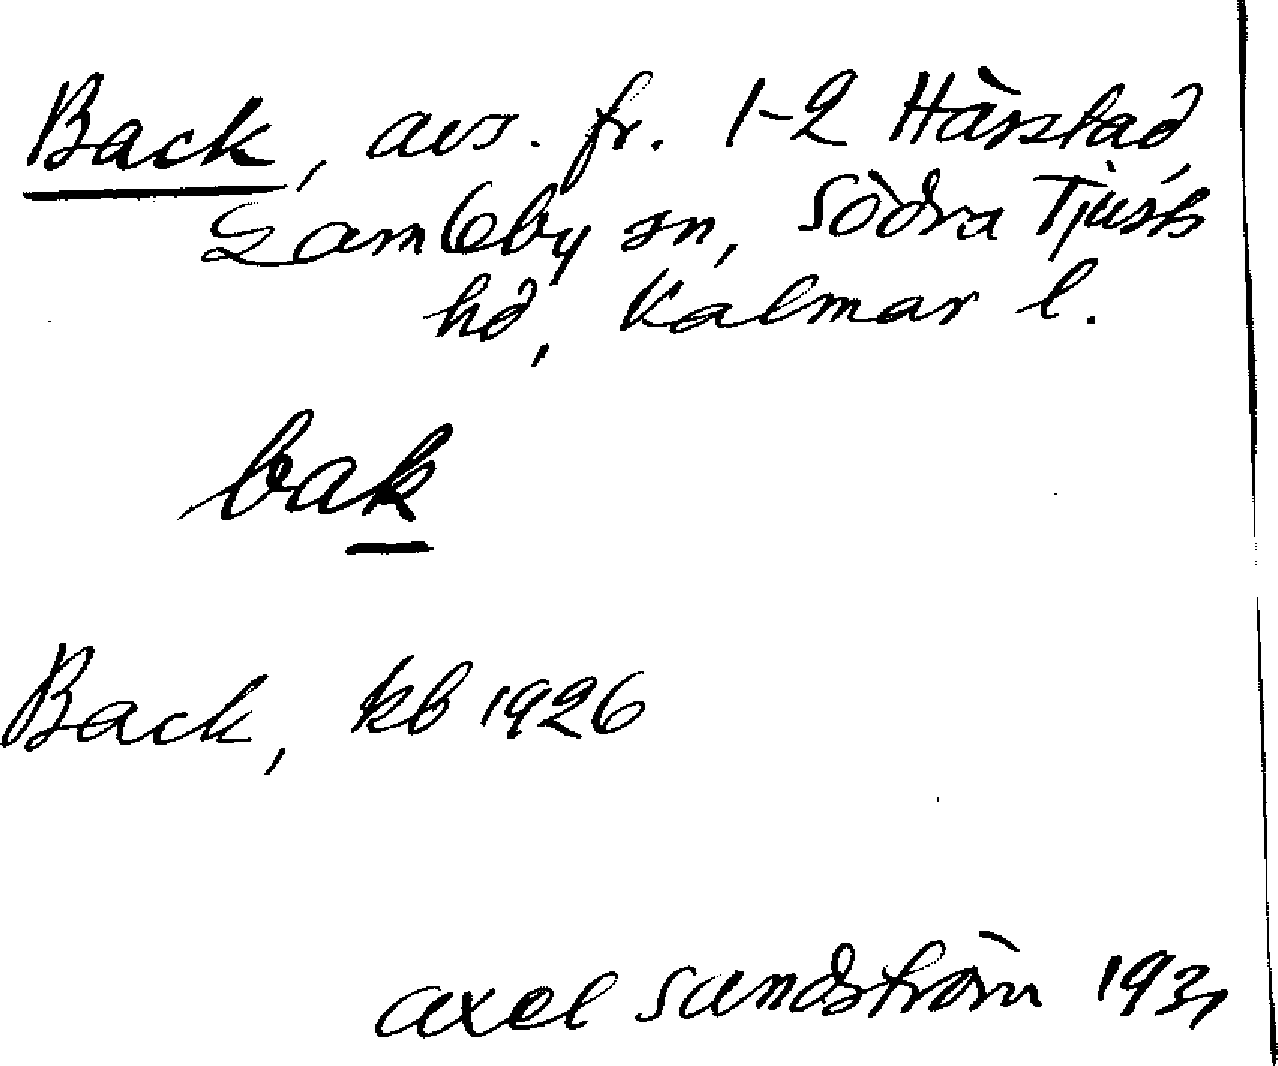 Back, avs. fr. 1-2 Hårstad,
Gamleby sn, Södra Tjusts
hd, Kalmar l.
bak
Back, kb 1926
Axel Sandström 1931